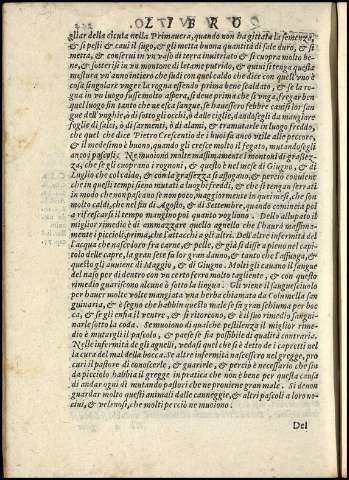 gliar della cicuta nella Primauera, quando non ha gittata la semenza,
& si pesti & caui il sugo, & gli metta buona quantità di sale duro, & si
metta, & conserui in vn vaso di terra inuitriato & si cuopra molto be-
ne, & sotterisi in vn montone di letame putrido, & quiui si tenga questa
mestura vn' anno intiero che sudi con quel caldo che dice con quell' vno è
cosa singolare vnger la rogna essendo prima bene scaldato, & se la ro-
gna in vn luogo fusse molto aspera, si deue prima che si vnga, fregar ben
quel luogo sin tanto che n' esca sangue, se hauessero febbre causi lor san
gue dell' vnghie, ò di sotto gli occhi, ò dalle ciglie, dandosegli da mangiare
foglie di salci, ò di sarmenti, ò d' alami, & tramutarle in luogo freddo,
che quel che dice Pietro Crescentio de i buoi fa anco vtile alle pecore,
& il medesimo è buono, quando gli cresce molto il fegato, mutandosegli
anco i pascoli. Ne muoiono molte massimamente i montoni di grassez-
za, che se gli cuoprono i rognoni, & questo è nel mese di Giugno, & di
Luglio che col caldo, & con la grassezza s' affogano, & perciò conuiene
che in questi tempi sieno mutati a luoghi freddi, & che si tengan serrati
in modo che non pascano se non poco, maggiormente in quei mesi, che son
molto caldi, che nel fin d' Agosto, & di Settembre, quando comincia poi
a rifrescarsi il tempo mangino poi quanto vogliono. Dello allupato il
miglior rimedio è di ammazzare quello agnello che l' haurà massima-
mente i piccioli, prima, che l' attacchi a gli altri. Dell' altre infermità del
l' acqua che nasce loro fra carne, & pelle, & già si disse a pieno nel capi-
tolo delle capre, la gran sete fa lor gran danno, & tanto che l' affuoga, &
questo gli auuiene di Maggio, & di Giugno. Molti gli cauano il sangue
del naso per di dentro con vn certo ferro molto tagliente, & con questo
rimedio guariscono alcune è sotto la lingua. Gli viene il sangue sciuolo
per hauer molte volte mangiata vna herba chiamata da Columella san
guinaria, & è segno che habbin questo male se fa gran schiuma per boc
ca, & se gli enfia il ventre, & si ritorcono, & è il suo rimedio sangui-
narle sotto la coda. Se muoiono di qualche pestilenza il miglior rime-
dio è mutargli il pascolo, & paese se fia possibile di qualità contraria.
Nelle infermità de gli agnelli, vedasi quel che si è detto de i capretti nel
la cura del mal della bocca. Se altre infermità nascessero nel gregge, pro
curi il pastore di conoscerle, & guarirle, & perciò è necessario che sin
da picciolo habbia il gregge in pratica che non è bene per questa causa
di andar ogni dì mutando pastori che ne proniene gran male. Si denon
guardar molto questi animali dalle canneggie, & altri pascoli a loro no-
ciui, & velenosi, che molti perciò ne muoiono.
Del